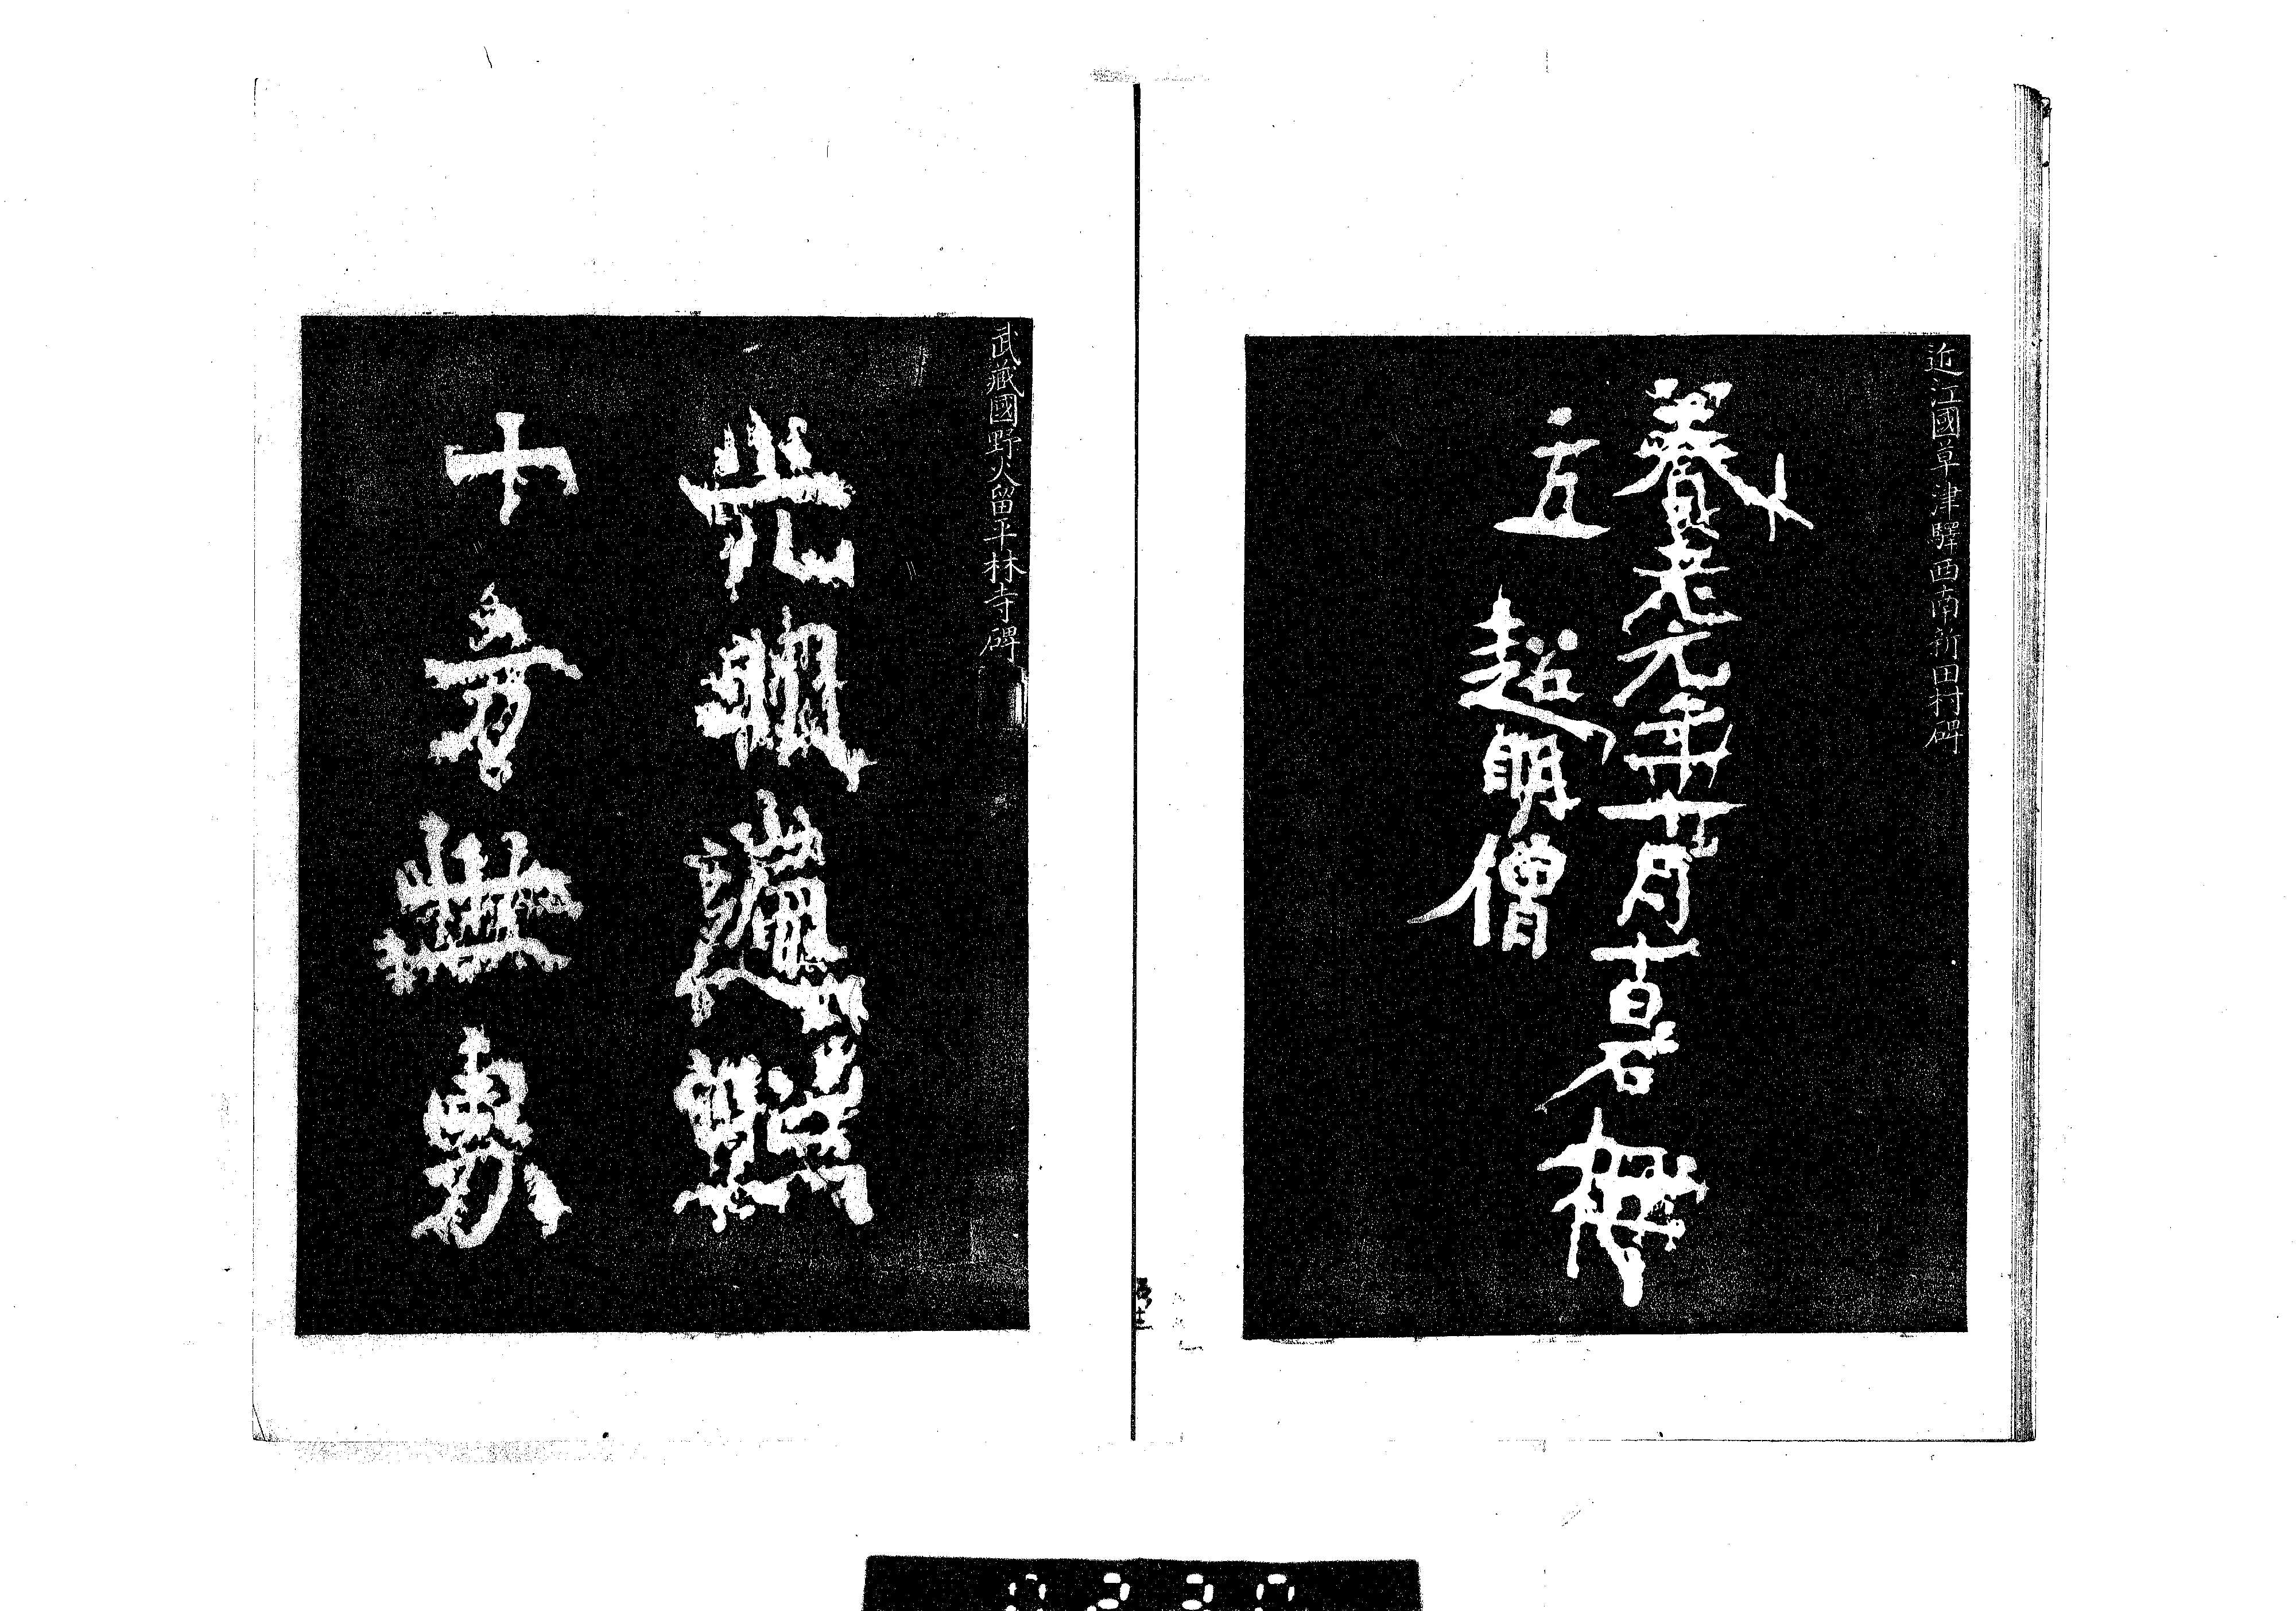 近江國草津驛西南新田村碑
養老元年十月十日石柱
立 超明僧
武藏國野火留平林寺碑
光明遍照
十方世界